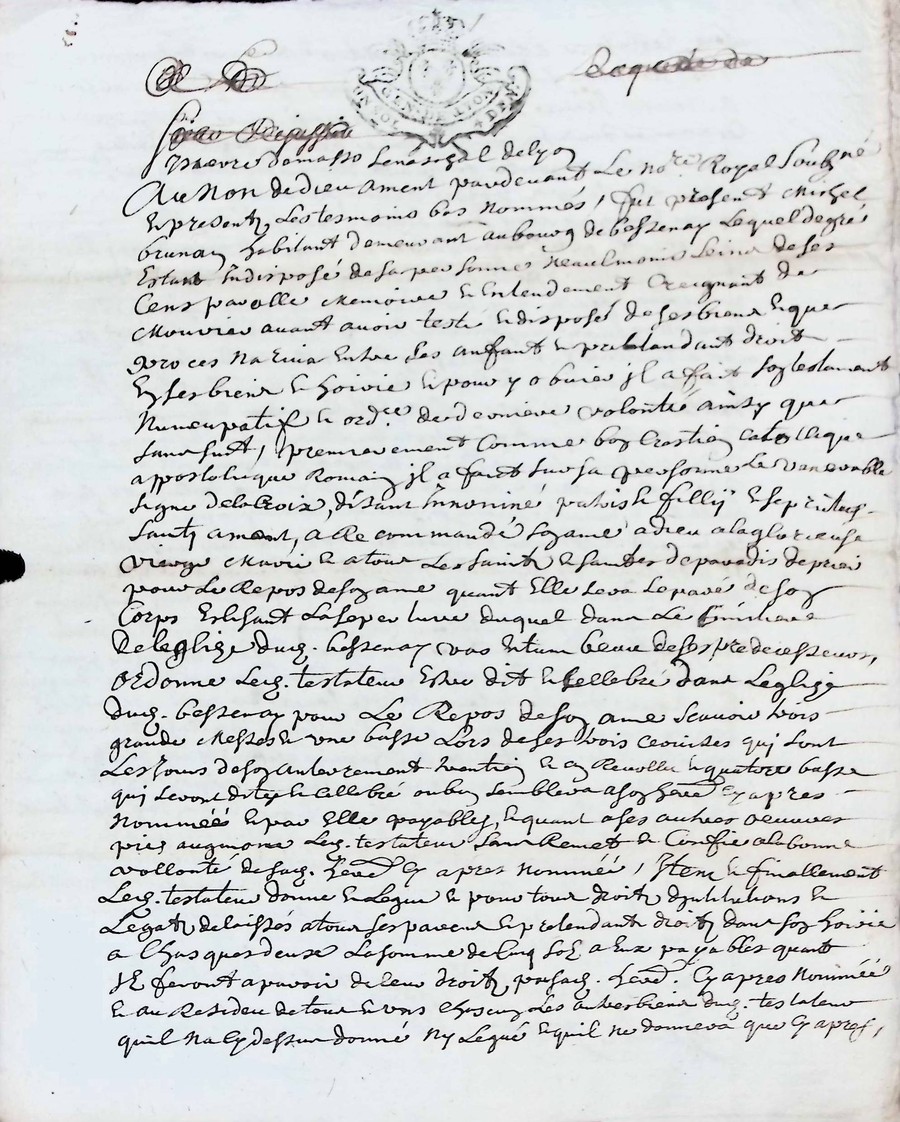 GEN DE LION
Au Non de dieu ament pardevant Le no.re Royal Soubz.né
En presentz Les tesmoins bas Nommés, fut present Michel
brunay habitant demeurant au bourg de bessenay Lequel de gré
Estant Indisposé de sa personne Neaulmoins Seine de ses
Cens parolle Memoire et Entendement Creignant de
Mourire avant avoir testé et disposé de ses biens et que
proces Na Entre Ses anfant et prettendant droit
En ses biens et hoirie et pour y obuier jl a fait son testament
Nuncupatif et ord.ce de derniere volonté ainsy que
Sans suit, premierement Comme bon Crestien Catollique
appostolique Romain jl a fait sur sa personne Le Vanerable
signe de la Croix, disant Innominé patris et fillij et spiritus
Santi ament, a Recommandé son ame a dieu a la glorieuse
vierge Marie et a tous Les saints et saintes de paradis de prier
pour Le Repos de son ame quant Elle sera separé de son
Corps Eslisant La sepulture duquel dans Le Simitiere
de leglize dud. bessenay vas et tumbeau de ses predecesseurs,
ordonne Led. testateur Estre dit et sellebré dans Leglize
dud. bessenay pour Le Repos de son ame scavoir trois
grande Messes et une basse Lors de ses trois services quj sont
Les jours de son anterrement trentein et an Revollu et quatres basse
quj seront dites et Cellebré ou bon semblera a son here. Cy apres
Nommée et par Elle payables, et quant a ses autres oeuvres
pies aumones Led. testateur San Remet et Confie a la bonne
vollonté de sad. here. Cy apres Nommée, Item et finallement
Led. testateur donne et Legue et pour tous droitz dintitutions et
Legatz delaissés a tous ses parens et pretendant droitz dans son hoirie
a Chasque deux La somme de Cinq solz a Eux payables quant
Il feront apparoir de leur droitz par sad. here. Cy apres Nommée
et au Residu de tous et uns Chascun Les autres biens dud. testateur
quil Na Cy dessus donné Ny Legué et quil ne donnera que Cy apres,